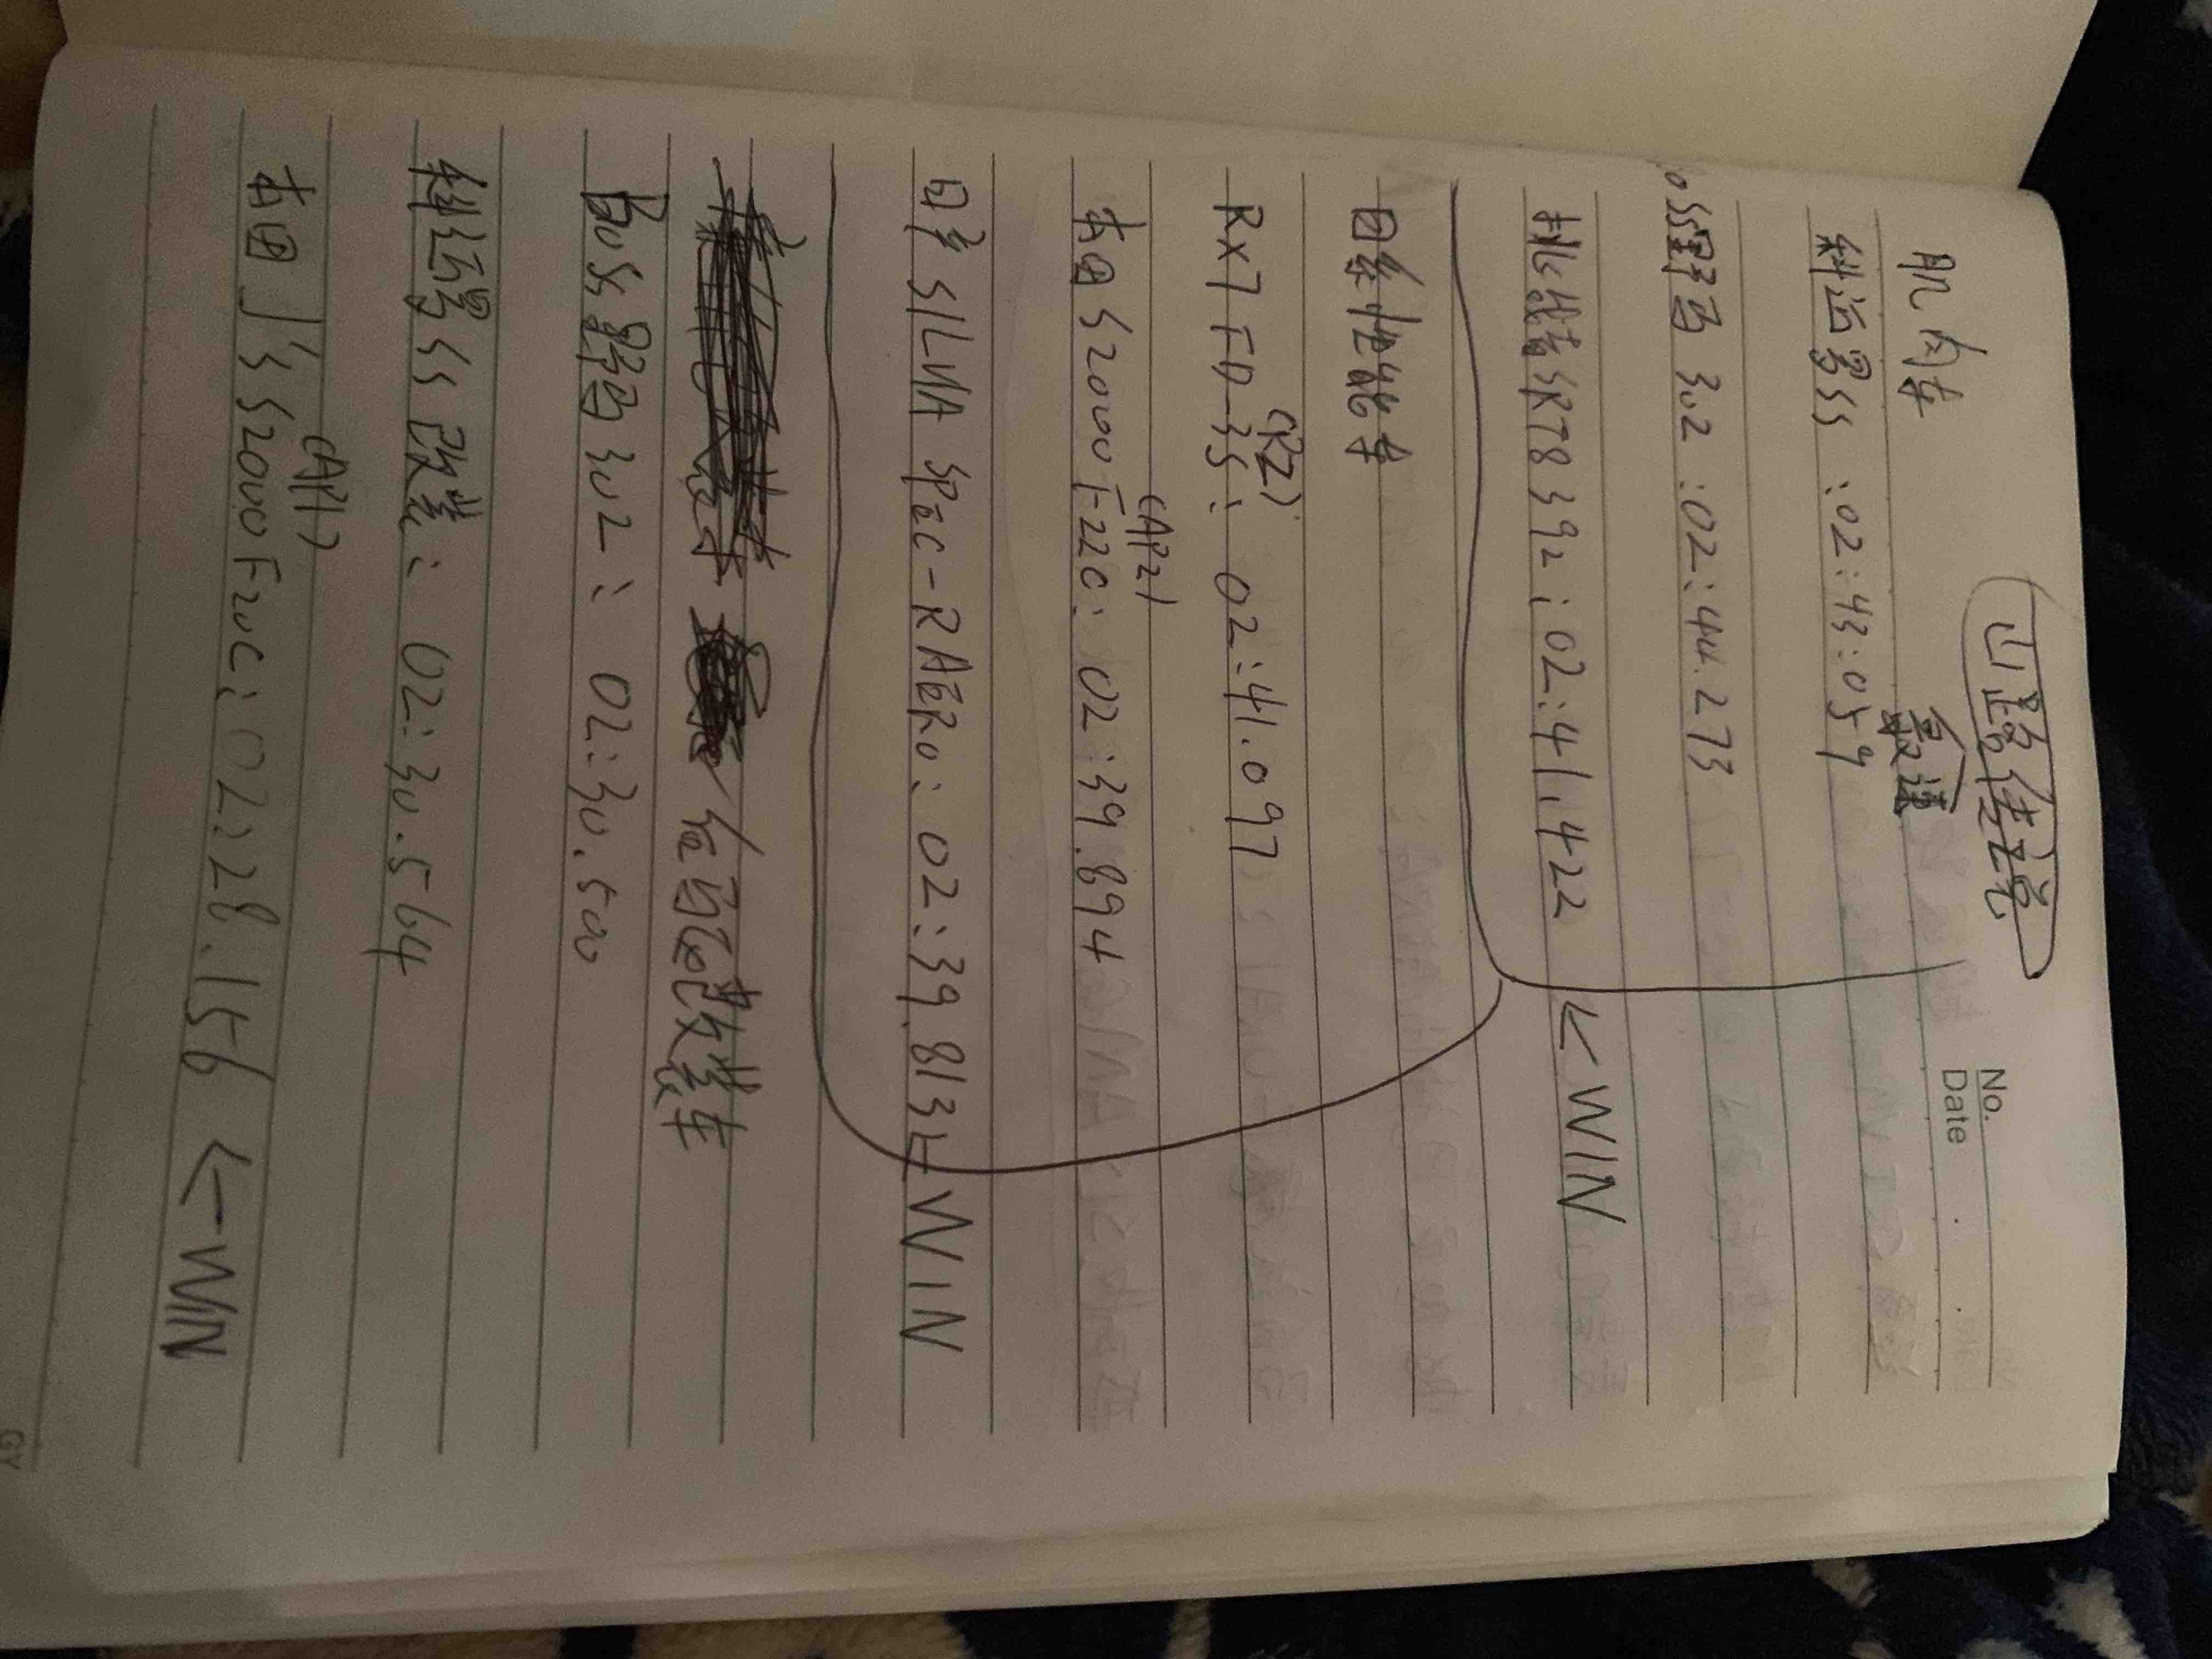 No.
Date
山路传说
肌肉车
最速
科迈罗SS:02:43:059
野马 302:02:44.273
挑战者SRT8 392:02:41.422 ←WIN
日系性能车
(RZ)
RX7 FD-3S: 02:41.097
(AP2)
本田S2000F22C: 02:39.894
日产SILVIA SPEC-RAERO: 02:39.813←WIN
百改装车
Boss野马302: 02:30.500
科迈罗SS改装: 02:30.564
(AP1)
本田J'S S2000F20C:02:28.156 ←WIN
GY